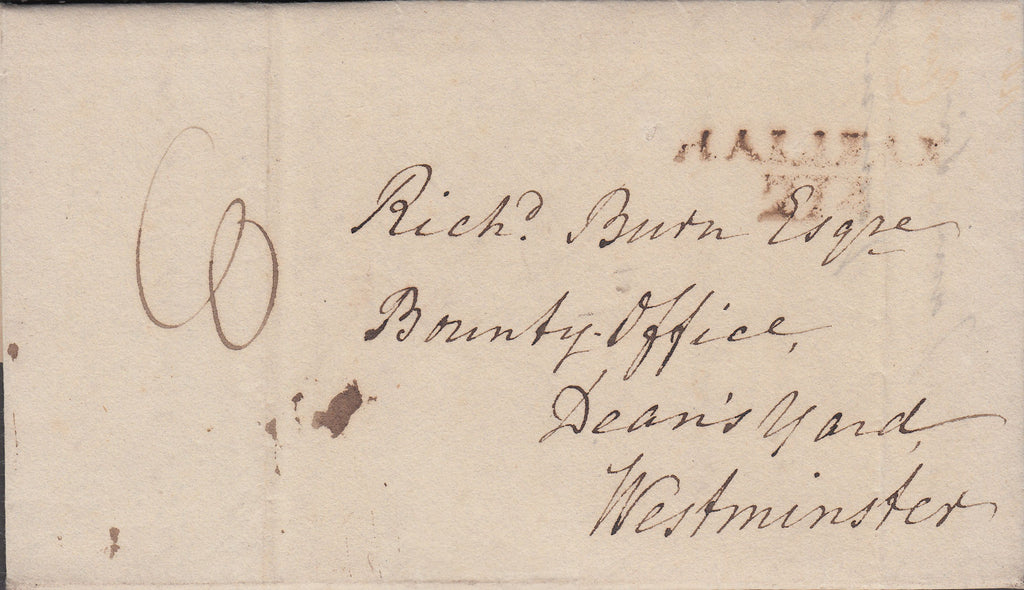 HALIFAX
Rich.d Burn Esqre
Bounty-Office,
Dean's Yard,
Westminster